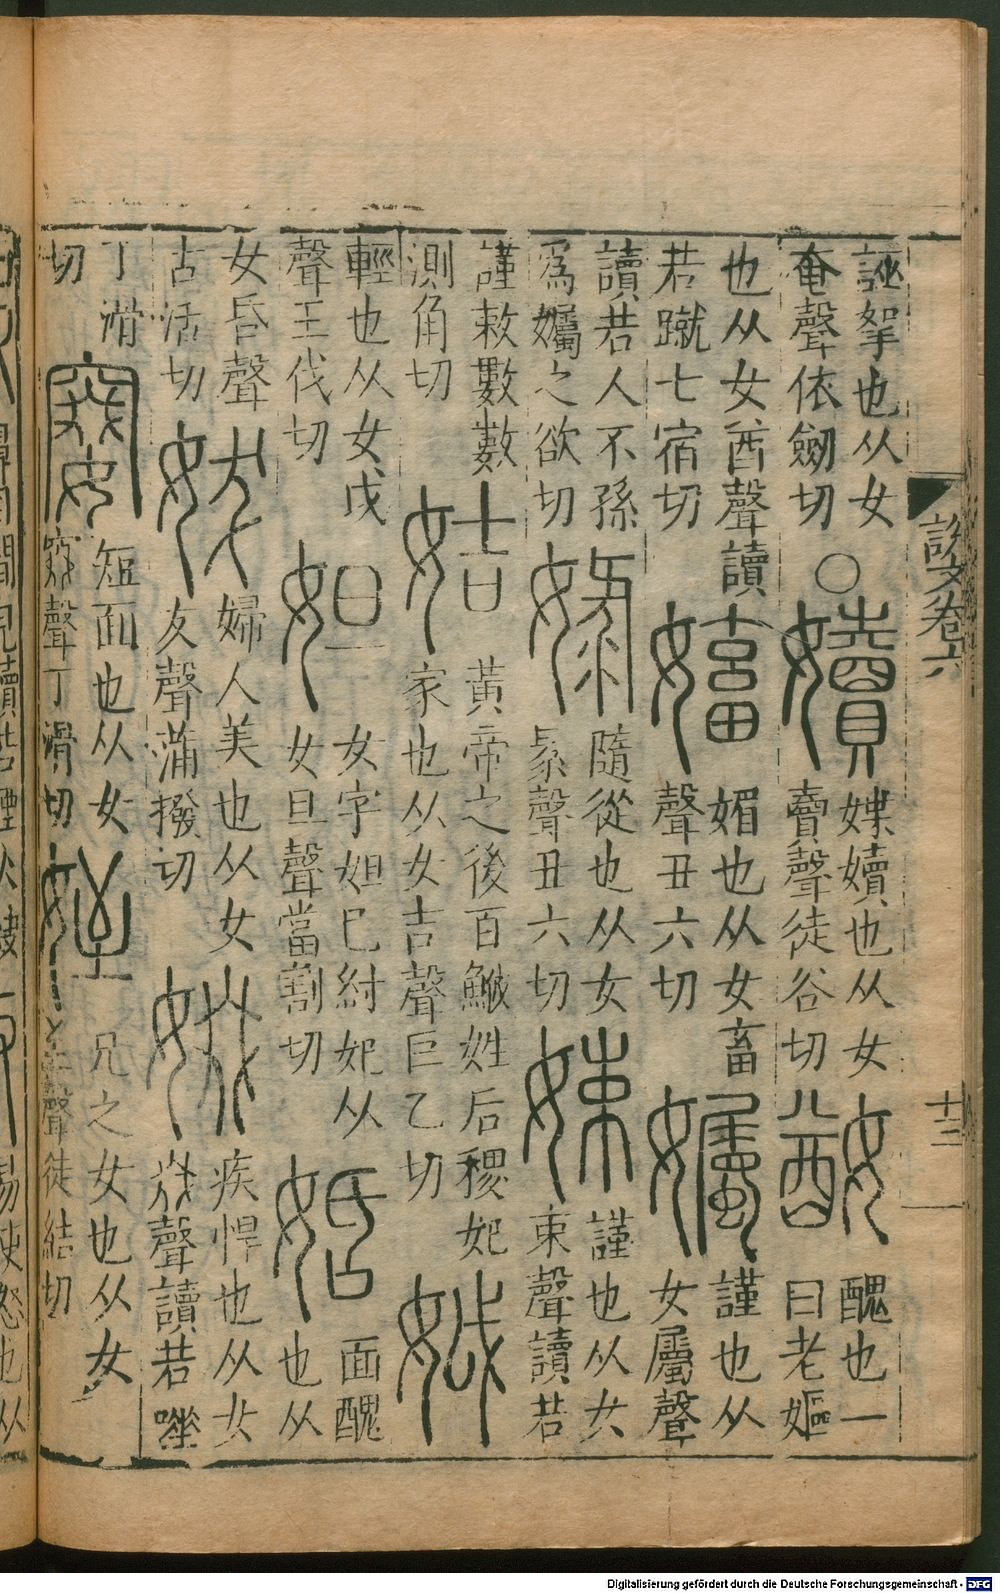 說文卷六
十二
誣挐也从女
奄聲依劒切
○
嬻
媟嬻也从女
賣聲徒谷切
媨
醜也一
曰老嫗
也从女酋聲讀
若蹴七宿切
媚也从女畜
聲丑六切
孎
謹也从
女屬聲
讀若人不孫
爲孎之欲切
娽
隨從也从女
彔聲丑六切
娕
謹也从女
束聲讀若
謹敕數數
測角切
姞
黃帝之後百鮻姓后稷妃
家也从女吉聲巨乙切
輕也从女戉
聲王伐切
妲
女字妲己紂妃从
女旦聲當割切
姡
面醜
也从
女昏聲
古活切
妭
婦人美也从女
犮聲蒲撥切
娺
疾悍也从女
叕聲讀若唾
丁滑
切
窡
短面也从女
窡聲丁滑切
姪
兄之女也从女
至聲徒結切
Digitalisierung gefördert durch die Deutsche Forschungsgemeinschaft - DFG